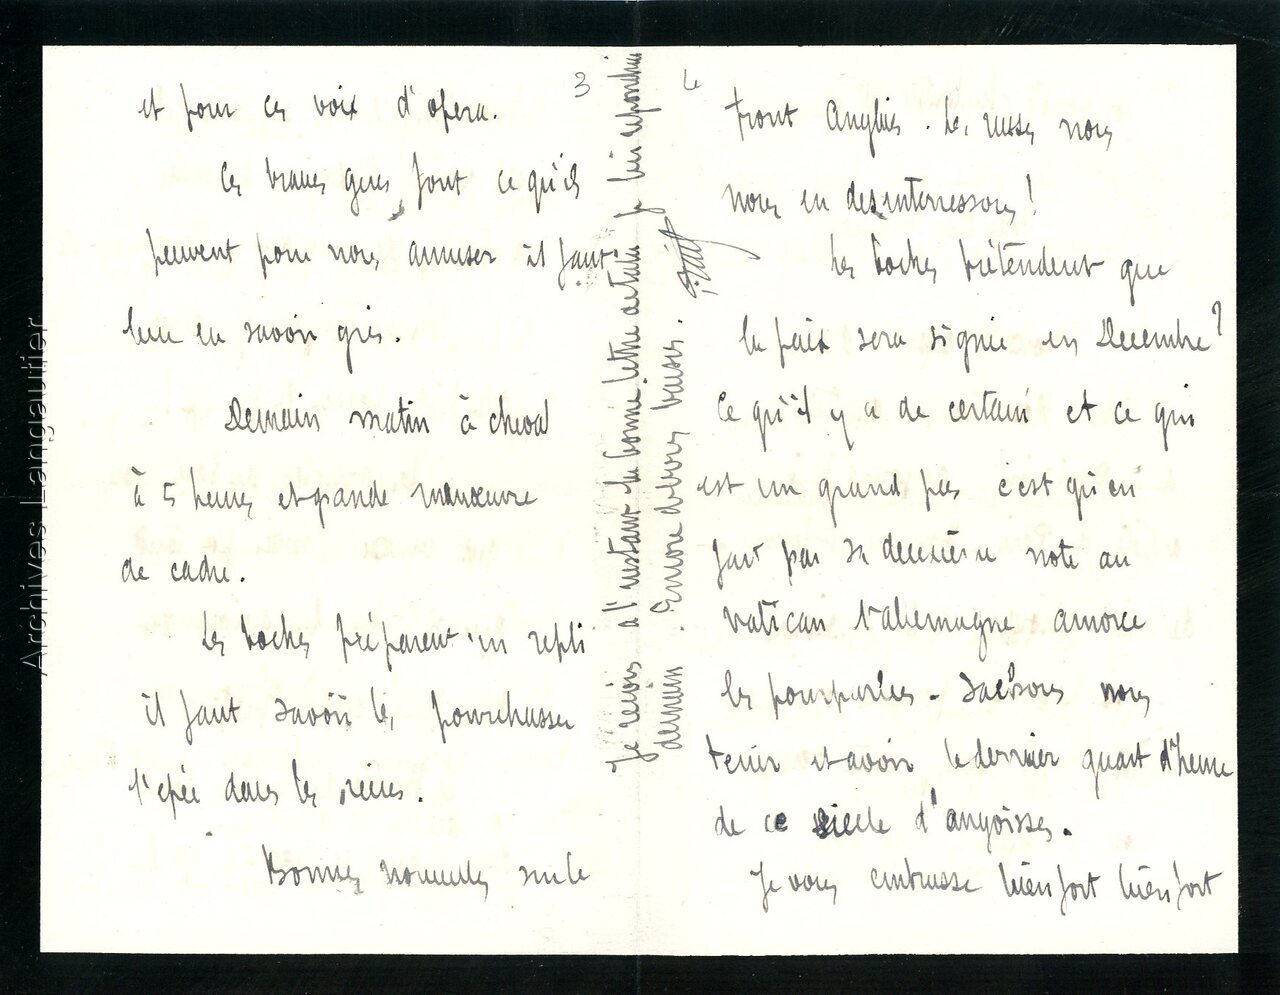 3
et pour ces voix d'opera.
Ces braves gens font ce qu'ils
peuvent pour nous amuser il faut
leur en savoir gré.
Demain matin à cheval
à 5 heures et grande manœuvre
de cadre.
Les boches préparent un repli
il faut savoir les pourchasser
l'épée dans les reins.
Bonnes nouvelles sur le
4
front Anglais. Les russes nous
nous en desinterressons!
Les boches prétendent que
la paix sera signée en Decembre?
Ce qu'il y a de certain et ce qui
est un grand pas c'est qu'en
fait par sa deuxième note au
Vatican l'allemagne amorce
les pourparlers. Sachons nous
tenir et avoir le dernier quart d'heure
de ce siecle d'angoisses.
Je vous embrasse bien fort bien fort
Je reçois à l'instant la bonne lettre de Je lui repondrai
demain. Encore doux baisers.
Archives Langautier